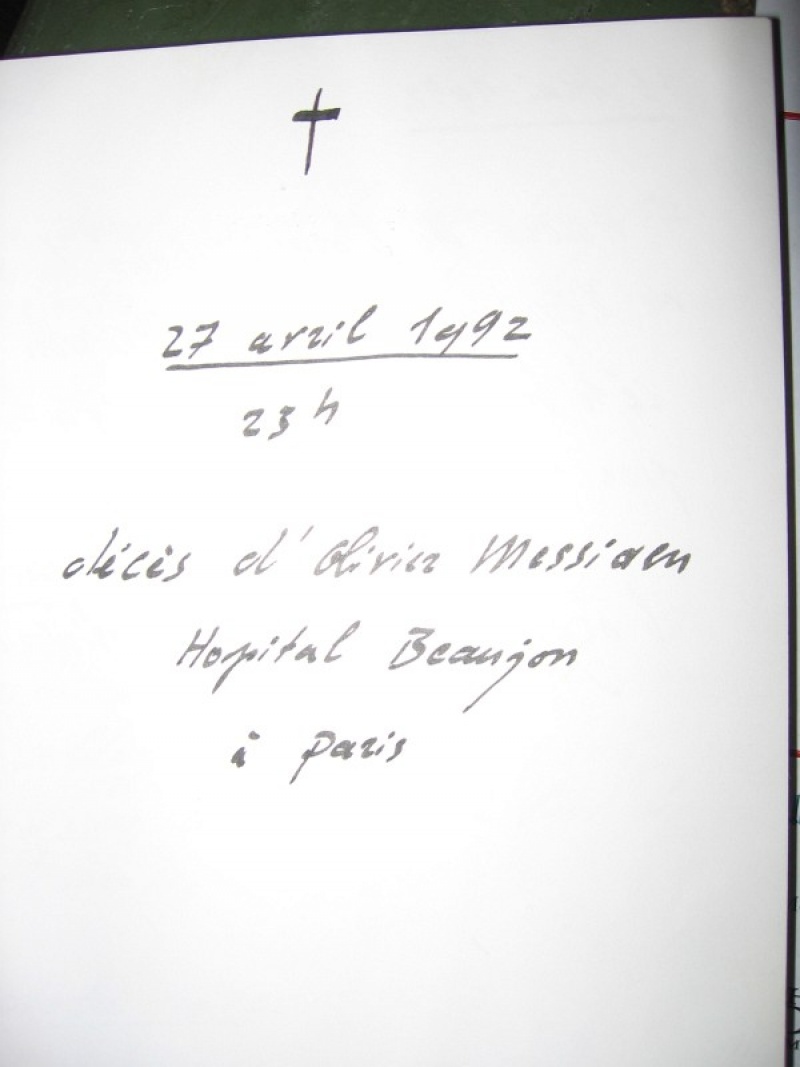 27 avril 1992
23h
décès d'Olivier Messiaen
Hopital Beaujon
à Paris